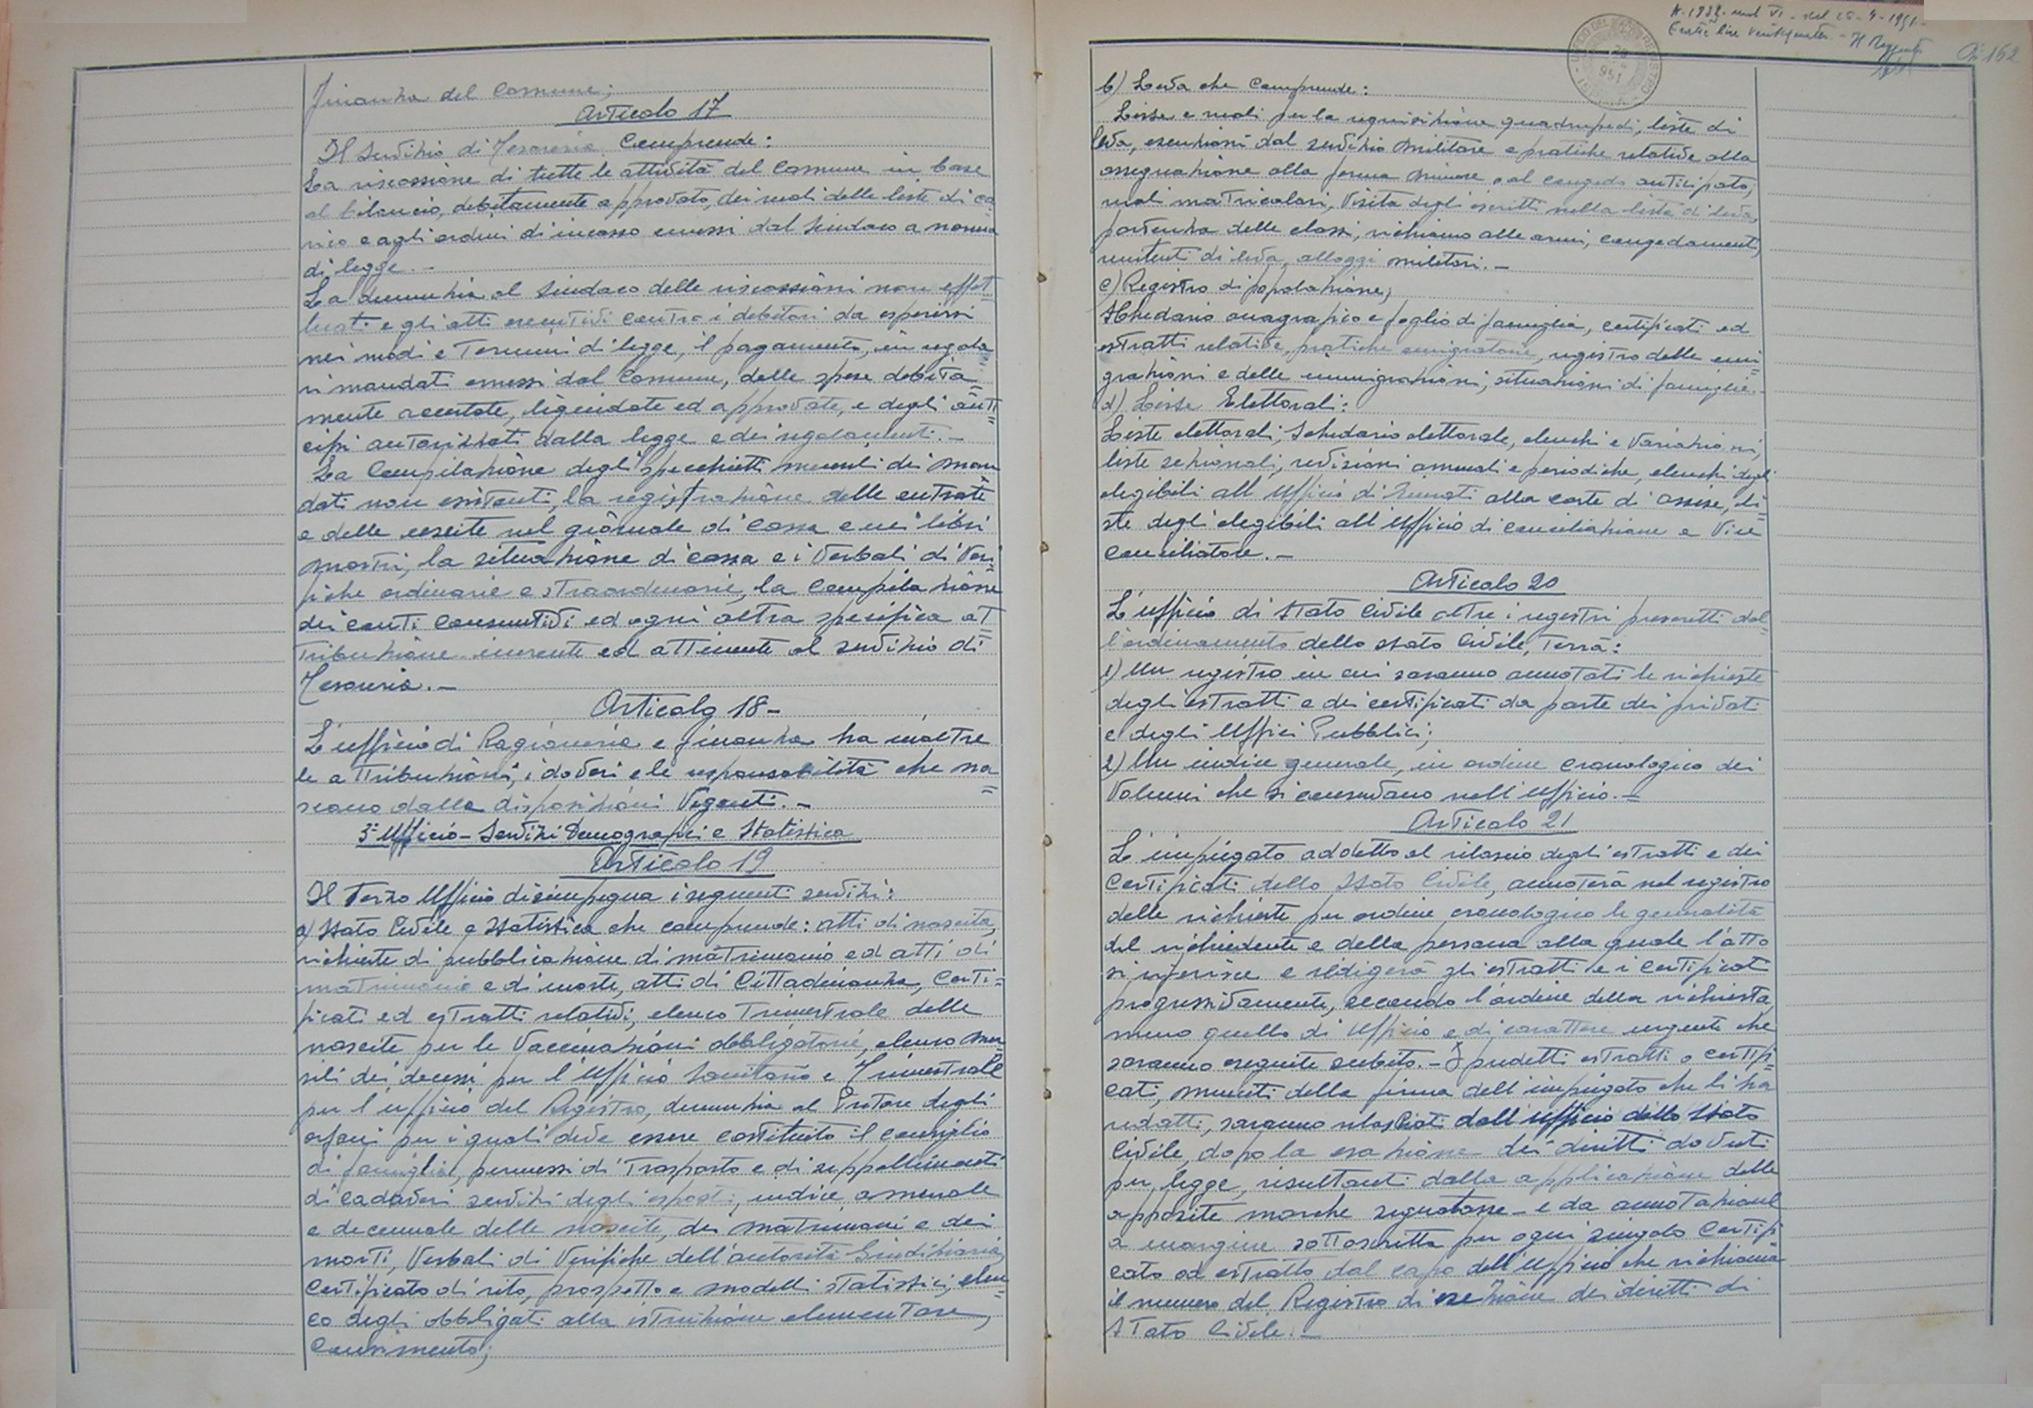 Finanza del Comune;
Articolo 17
Il servizio di Tesoreria comprende:
La riscossione di tutte le attività del Comune in base
al bilancio, debitamente approvato, dei ruoli delle liste di ca=
rico e agli ordini di incasso emessi dal Sindaco a norma
di legge.-
La denunzia al Sindaco delle riscossioni non effet=
tuati e gli atti esecutivi contro i debitori da esperirsi
nei modi e termini di legge, il pagamento, in regola=
ri mandati emessi dal Comune, delle spese debita=
mente accertate, liquidate ed approvate, e degli anti=
cipi autorizzati dalla legge e dei regolamenti.-
La compilazione degli specchietti mensili dei man
dati non esitenti, la registrazione delle entrate
e delle uscite nel giornale di cassa e nei libri
mastri, la situazione di cassa e i verbali di veri=
fiche ordinarie e straordinarie, la compilazione
dei conti consuntivi ed ogni altra specifica at=
tribuzione inerente ed attinente al servizio di
Tesoreria.-
Articolo 18-
L'ufficio di Ragioneria e finanza ha inoltre
le attribuzioni, i doveri e le responsabilità che na=
scano dalle disposizioni vigenti.-
3° Ufficio - Servizi Demografici e Statistica
Articolo 19
Il terzo Ufficio disimpegna i seguenti servizi:
a) Stato Civile e Statistica che comprende: atti di nascita,
richieste di pubblicazione di matrimonio ed atti di
matrimonio e di morte, atti di Cittadinanza, certi=
ficati ed estratti relativi, elenco trimestrale delle
nascite per le vaccinazioni obbligatorie, elenco men=
sili dei decessi per l'Ufficio Sanitario e Trimestrale
per l'ufficio del Registro, denunzia al Pretore degli
orfani per i quali deve essere costituito il consiglio
di famiglia, permessi di trasporto e di seppellimenti
di cadaveri servizi degli esposti, indice annuale
e decennale delle nascite, dei matrimoni e dei
morti, Verbali di Verifiche dell'autorità Giudiziaria,
certificato di rito, prospetto e modelli statistici, elen=
co degli obbligati alla istruzione elementare,
Censimento;
A. 1939 mod VI - del 28-4-1951-
Esatte lire - Il Reggente
162
UFFICIO DEL REGISTRO
951
b) Leva che comprende:
Liste e ruoli per la requisizione quadrupedi, liste di
leva, esenzioni dal servizio militare e pratiche relative alla
assegnazione alla ferma minore o al congedo anticipato,
ruoli matricolari, visita degli iscritti nella liste di leva,
partenza delle classi, richiamo alle armi, congedamenti,
renitenti di leva, alloggi militari.-
c) Registro di popolazione;
Schedario anagrafico e foglio di famiglia, certificati ed
estratti relative, pratiche emigratorie, registro delle emi=
grazioni e delle immigrazioni, situazioni di famiglie.-
d) Liste Elettorali:
Liste elettorali, Schedario elettorale, elenchi e variazioni,
liste sezionali, revisioni annuali e periodiche, elenchi degli
elegibili all'Ufficio di Giurati alla corte di assise, li=
ste degli elegibili all'Ufficio di conciliazione e Vice
conciliatore.-
Articolo 20
L'ufficio di Stato Civile oltre i registri prescritti dal=
l'ordinamento dello stato Civile, terrà:
1) Un registro in cui saranno annotati le richieste
degli estratti e dei certificati da parte dei privati
e degli Uffici Pubblici;
2) Un indice generale, in ordine cronologico dei
Volumi che si conservano nell'Ufficio.-
Articolo 21
L'impiegato addetto al rilascio degli estratti e dei
Certificati dello Stato Civile, annoterà nel registro
delle richieste per ordine cronologico le generalità
del richiedente e della persona alla quale l'atto
si riferisce e redigerà gli estratti e i certificati
progressivamente, secondo l'ordine della richiesta
meno quello di Ufficio e di carattere urgente che
saranno eseguite subito.- I predetti estratti o certifi=
cati, muniti della firma dell'impiegato che li ha
redatti, saranno rilasciati dall'ufficio dello Stato
Civile, dopo la esazione dei diritti dovuti
per legge, risultanti dalla applicazione delle
apposite marche segnatasse - e da annotazione
a margine sottoscritta per ogni singolo certifi
cato od estratto dal capo dell'Ufficio che richiama
il numero del Registro di esezione dei diritti di
Stato Civile.-